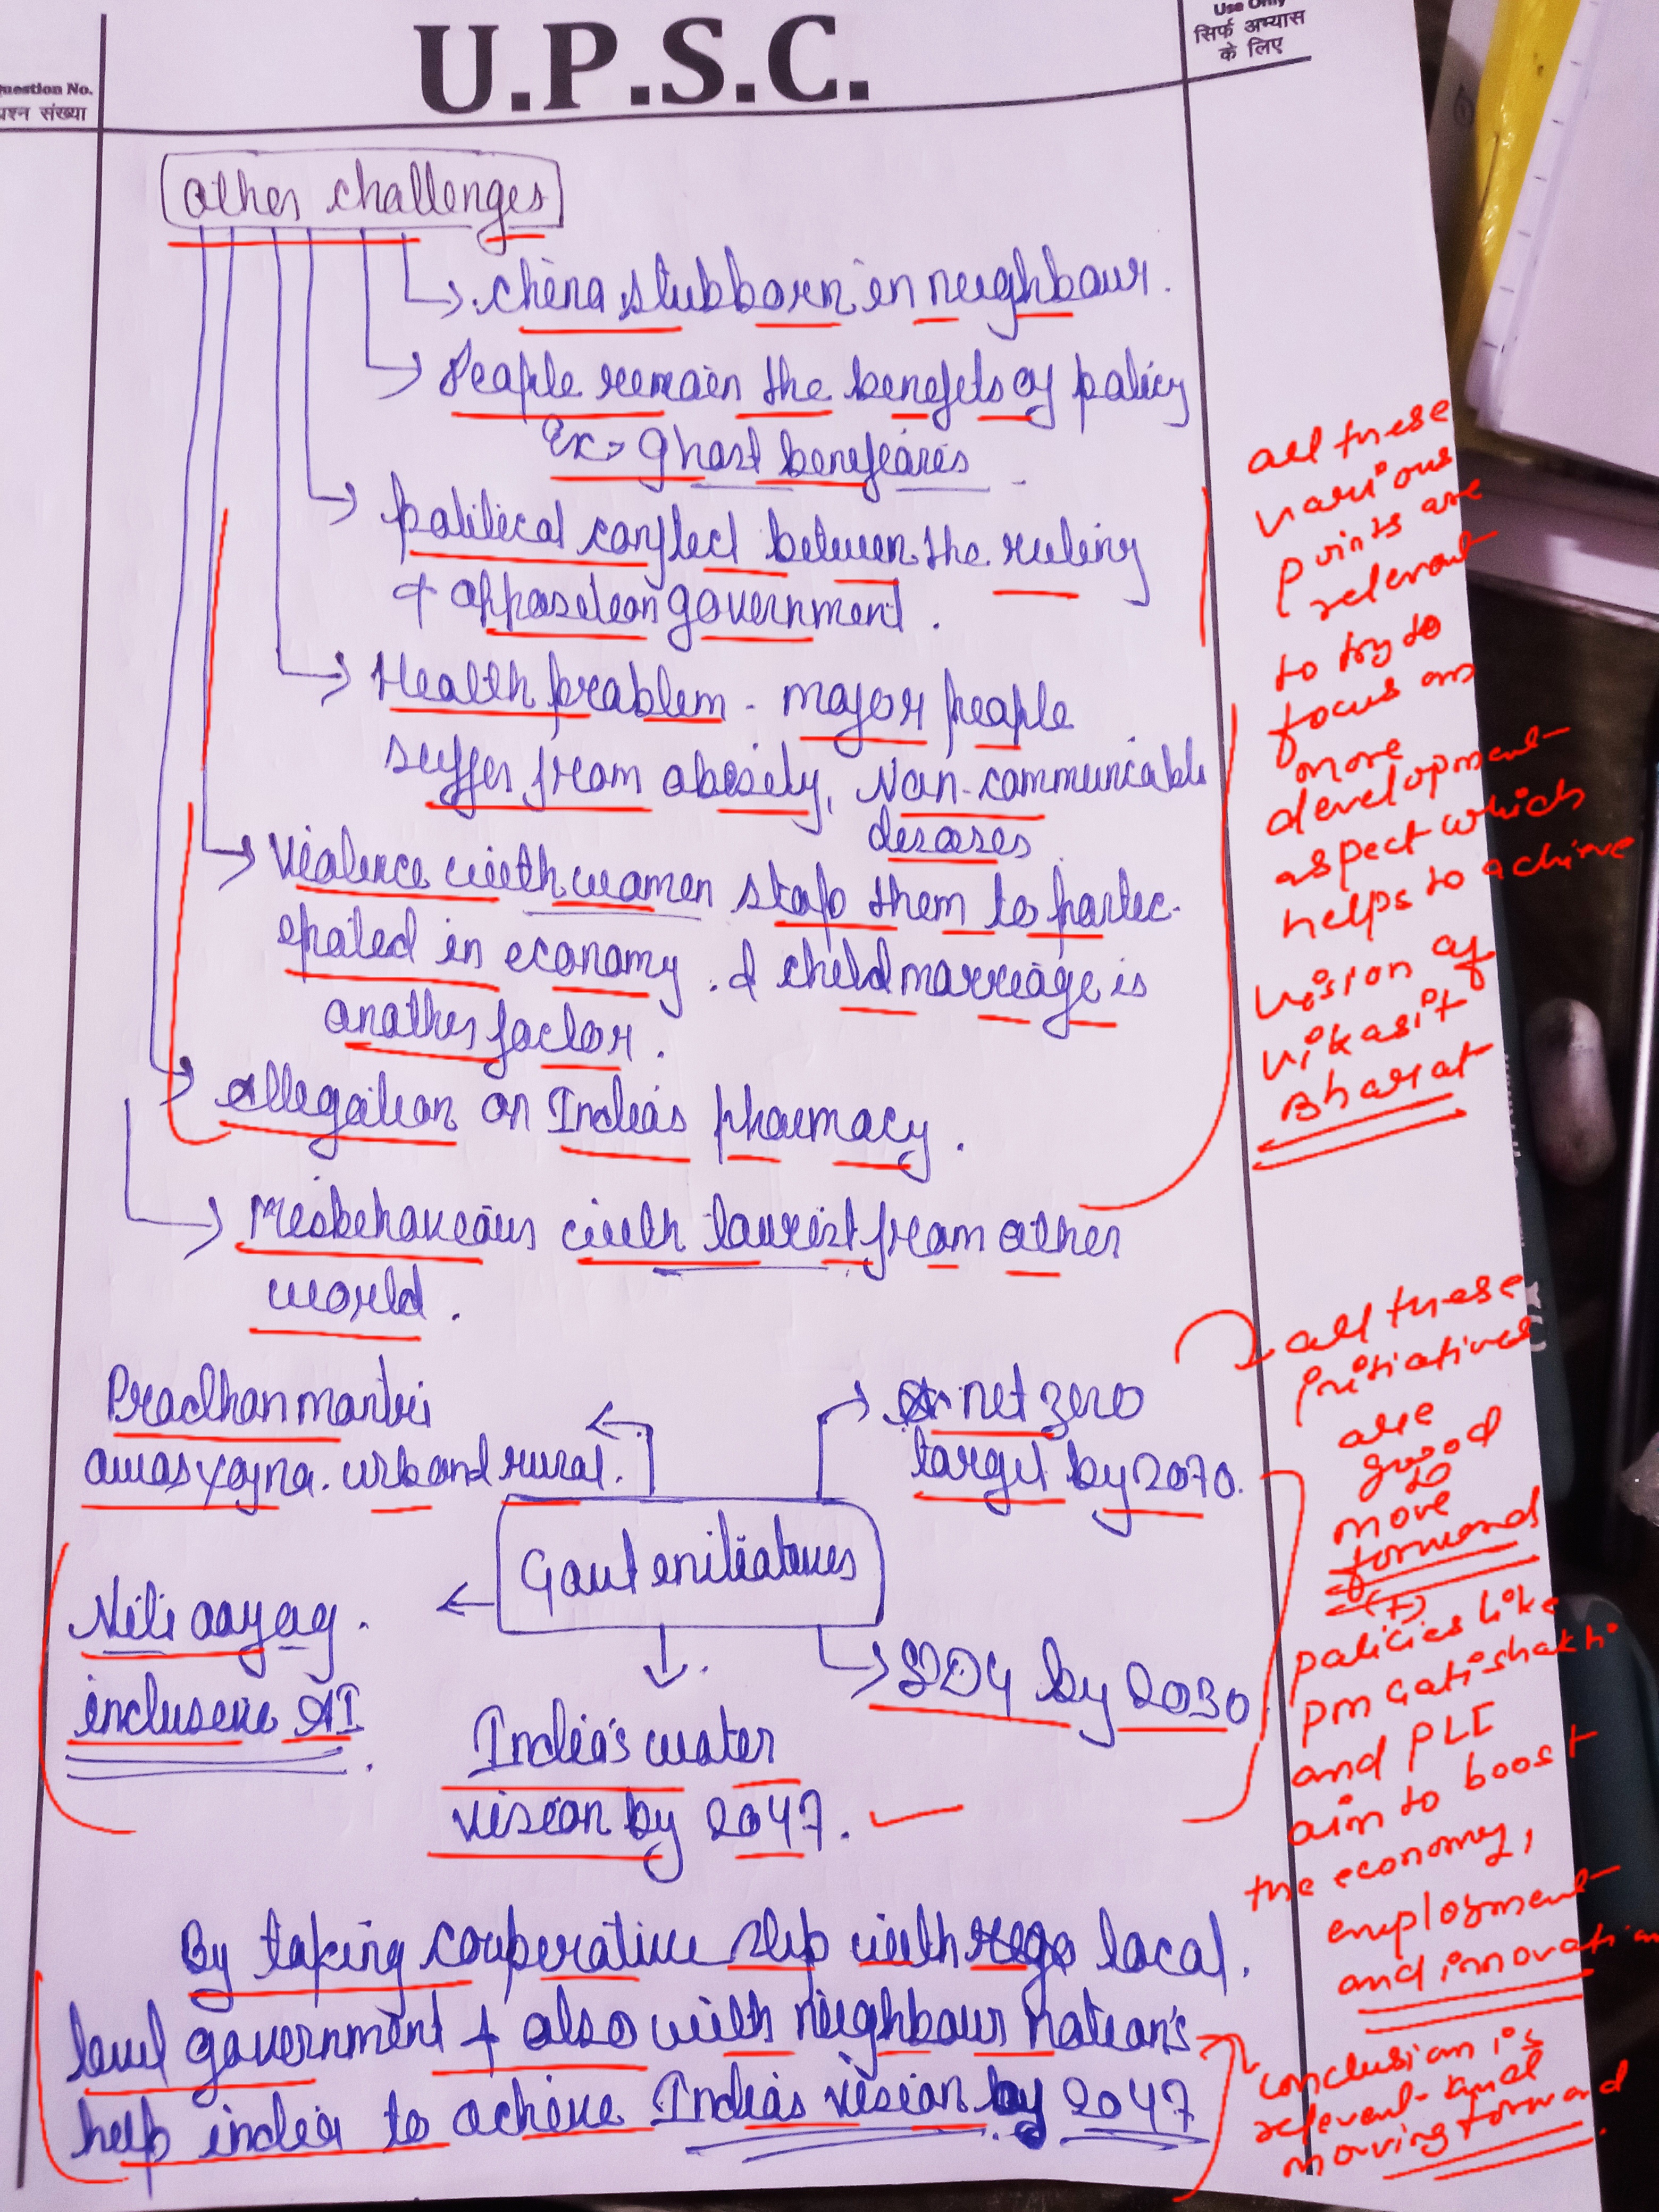 Use Only
सिर्फ अभ्यास
के लिए
Question No.
प्रश्न संख्या
U.P.S.C.
Other challenges
China stubborn in neighbour.
People remain the benefits of policy
Ex → Ghost benefiaries
political conflict between the ruling
+ opposition government.
Health problem - major people
suffer from obesity, Non-communicable
deseases
Violence with women stop them to partic-
ipated in economy. & child marriage is
another factor.
allegation on India's pharmacy.
Misbehaveious with tourist from other
world.
all these
various
points are
relevant
to try to
focus on
more
development
aspect which
helps to achieve
vision of
vikasit
Bharat
Pradhan mantri
awas yojna. urban & rural.
net zero
target by 2070.
Govt initiatives
Niti aayog.
inclusive AI
SDG by 2030
India's water
vision by 2047.
all these
initiatives
are
good
to
move
forward
(+)
policies like
PM Gatishakti
and PLI
aim to boost
the economy,
employment
and innovation
By taking cooperative step with local.
level government + also with neighbour nation's
help india to achieve India's vision by 2047
conclusion is
relevent and
moving forward